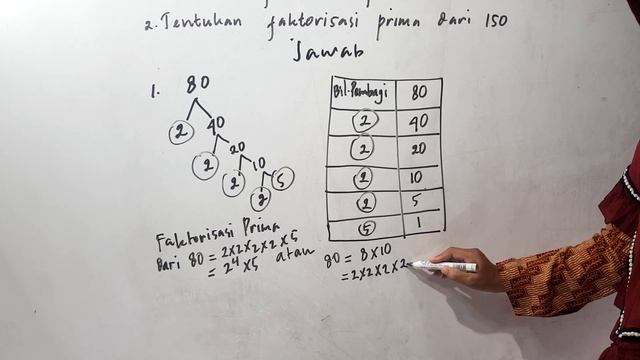 2. Tentukan faktorisasi prima dari 150
Jawab
1. 80
2 40
2 20
2 10
2 5
Faktorisasi Prima
Dari 80 = 2x2x2x2x5
= 2⁴x5
atau
Bil. Pembagi 80
2 40
2 20
2 10
2 5
5 1
80 = 8x10
= 2x2x2x2